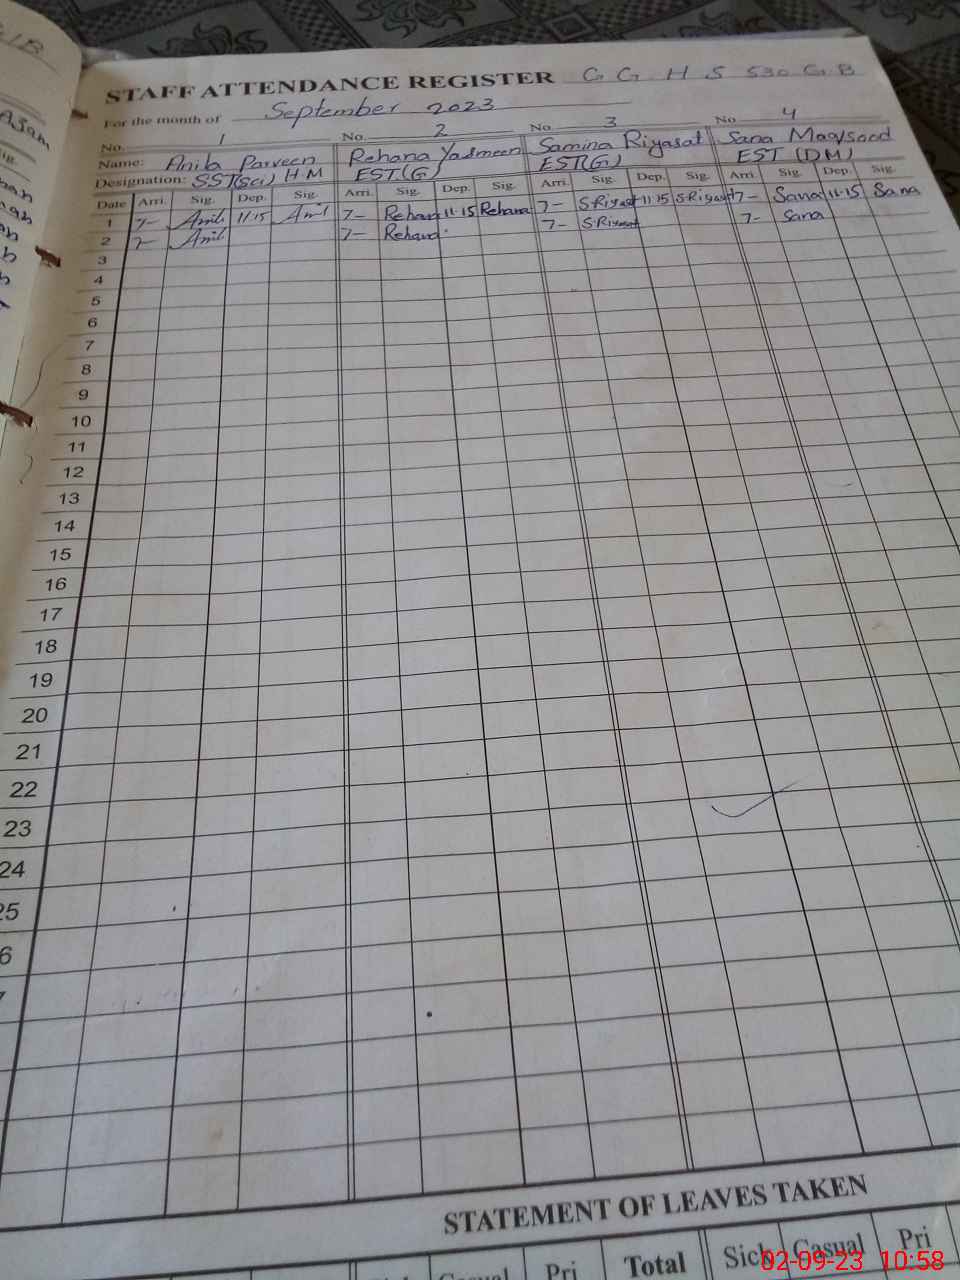 STAFF ATTENDANCE REGISTER G G H S 530 G B
For the month of September 2023
No. 1 No. 2 No. 3 No. 4
Name: Anila Parveen Rehana Yasmeen Samina Riyasat Sana Maqsood
Designation: SST(Sci) H M EST(G) EST(G) EST (DM)
Date Arri. Sig. Dep. Sig. Arri. Sig. Dep. Sig. Arri. Sig. Dep. Sig. Arri. Sig. Dep. Sig.
1 7- Anila 11:15 Anila 7- Rehana 11:15 Rehana 7- S.Riyasat 11:15 S.Riyasat 7- Sana 11:15 Sana
2 7- Anila 7- Rehana 7- S.Riyasat 7- Sana
3
4
5
6
7
8
9
10
11
12
13
14
15
16
17
18
19
20
21
22
23
24
25
6
7
STATEMENT OF LEAVES TAKEN
Casual Pri Total Sick Casual Pri
02-09-23 10:58